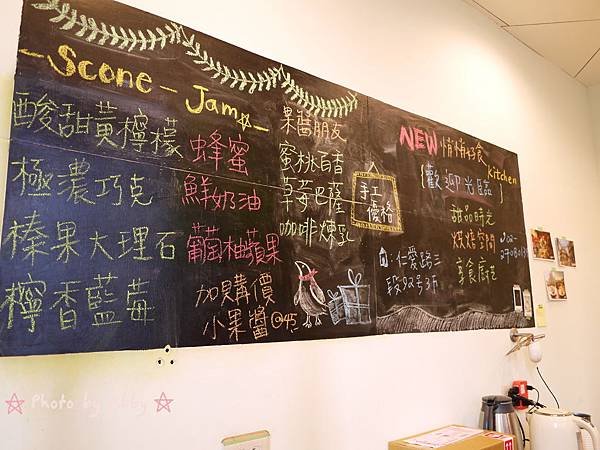 Scone
酸甜黃檸檬
極濃巧克
榛果大理石
檸香藍莓
Jam
蜂蜜
鮮奶油
葡萄柚蘋果
加購價
小果醬@45
果醬朋友
蜜桃白香
草莓巴薩
咖啡煉乳
手工
優格
NEW 悄悄好食
Kitchen
{歡迎光臨}
甜品時光
烘焙空間
享食廚藝
:仁愛路三
段
Photo by Abby